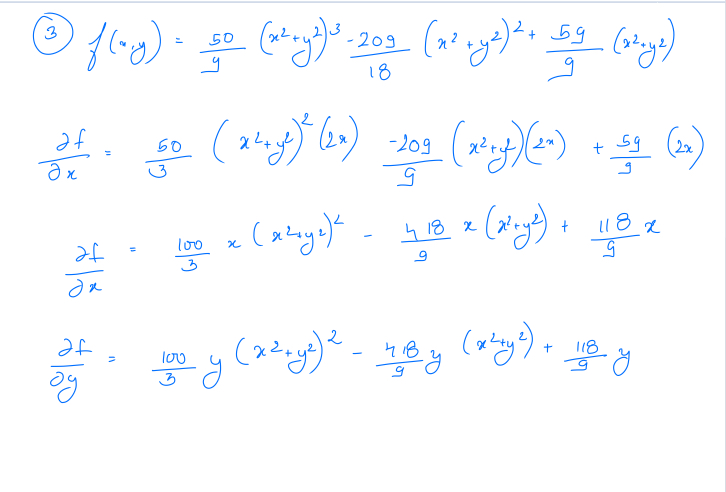 ③ f(x,y) = 50/9 (x²+y²)³ - 209/18 (x²+y²)² + 59/9 (x²+y²)
∂f/∂x = 50/3 (x²+y²)² (2x) - 209/9 (x²+y²)(2x) + 59/9 (2x)
∂f/∂x = 100/3 x (x²+y²)² - 418/9 x (x²+y²) + 118/9 x
∂f/∂y = 100/3 y (x²+y²)² - 418/9 y (x²+y²) + 118/9 y